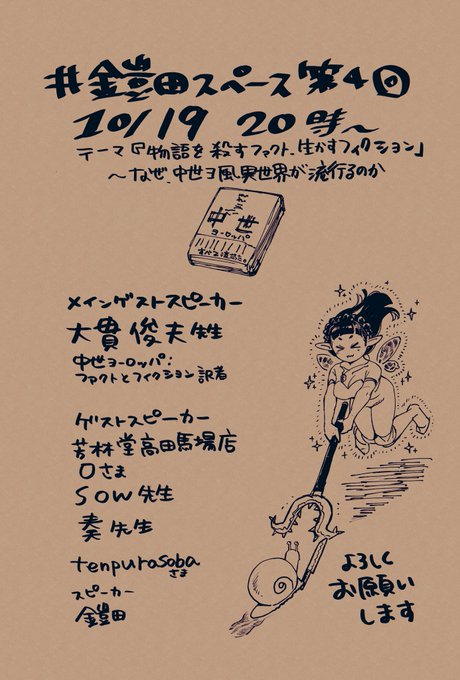 #鎧田スペース第4回
10/19 20時〜
テーマ『物語を殺すファクト、生かすフィクション』
〜なぜ、中世ヨ風異世界が流行るのか
中世
ヨーロッパ
メインゲストスピーカー
大貫俊夫先生
中世ヨーロッパ:
ファクトとフィクション訳者
ゲストスピーカー
芳林堂高田馬場店
Oさま
SOW先生
奏先生
tenpurasobaさま
スピーカー
鎧田
よろしく
お願い
します